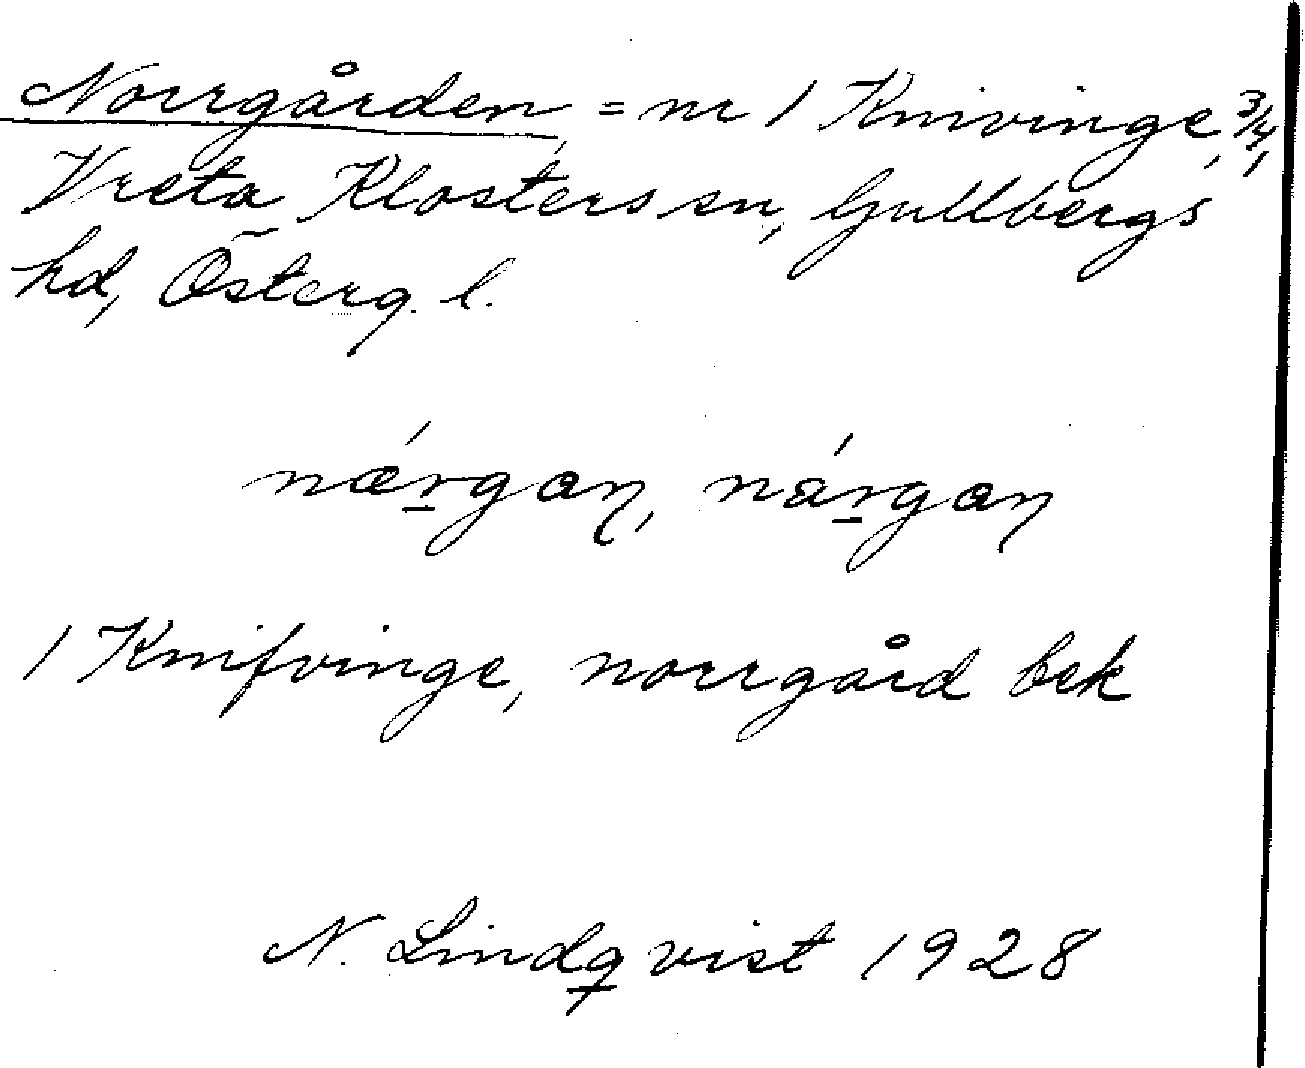 Norrgården = nr 1 Knivinge, 3/4,
Vreta Klosters sn, Gullbergs
hd, Österg. l.
1 Knifvinge, norrgård bek
N. Lindqvist 1928